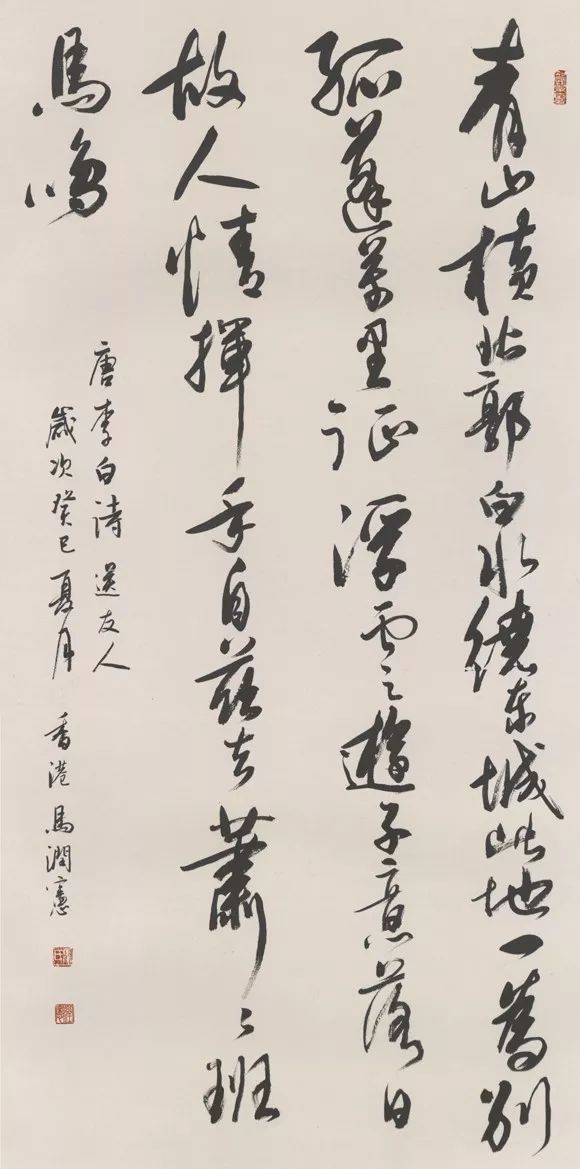 青山橫北郭白水繞東城此地一為別
孤蓬萬里征浮雲遊子意落日
故人情揮手自茲去蕭〻班
馬鳴
唐李白詩 送友人
歲次癸巳夏月 香港馬潤憲